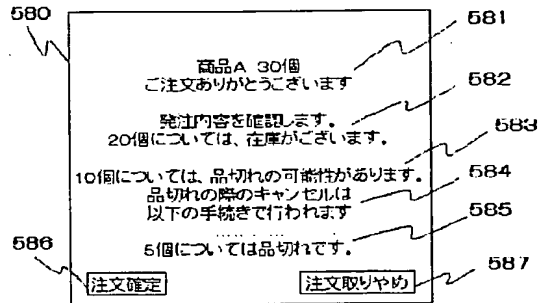 580
581
商品A 30個
ご注文ありがとうございます
582
発注内容を確認します。
20個については、在庫がございます。
583
10個については、品切れの可能性があります。
584
品切れの際のキャンセルは
以下の手続きで行われます
585
……
5個については品切れです。
586
注文確定
注文取りやめ
587